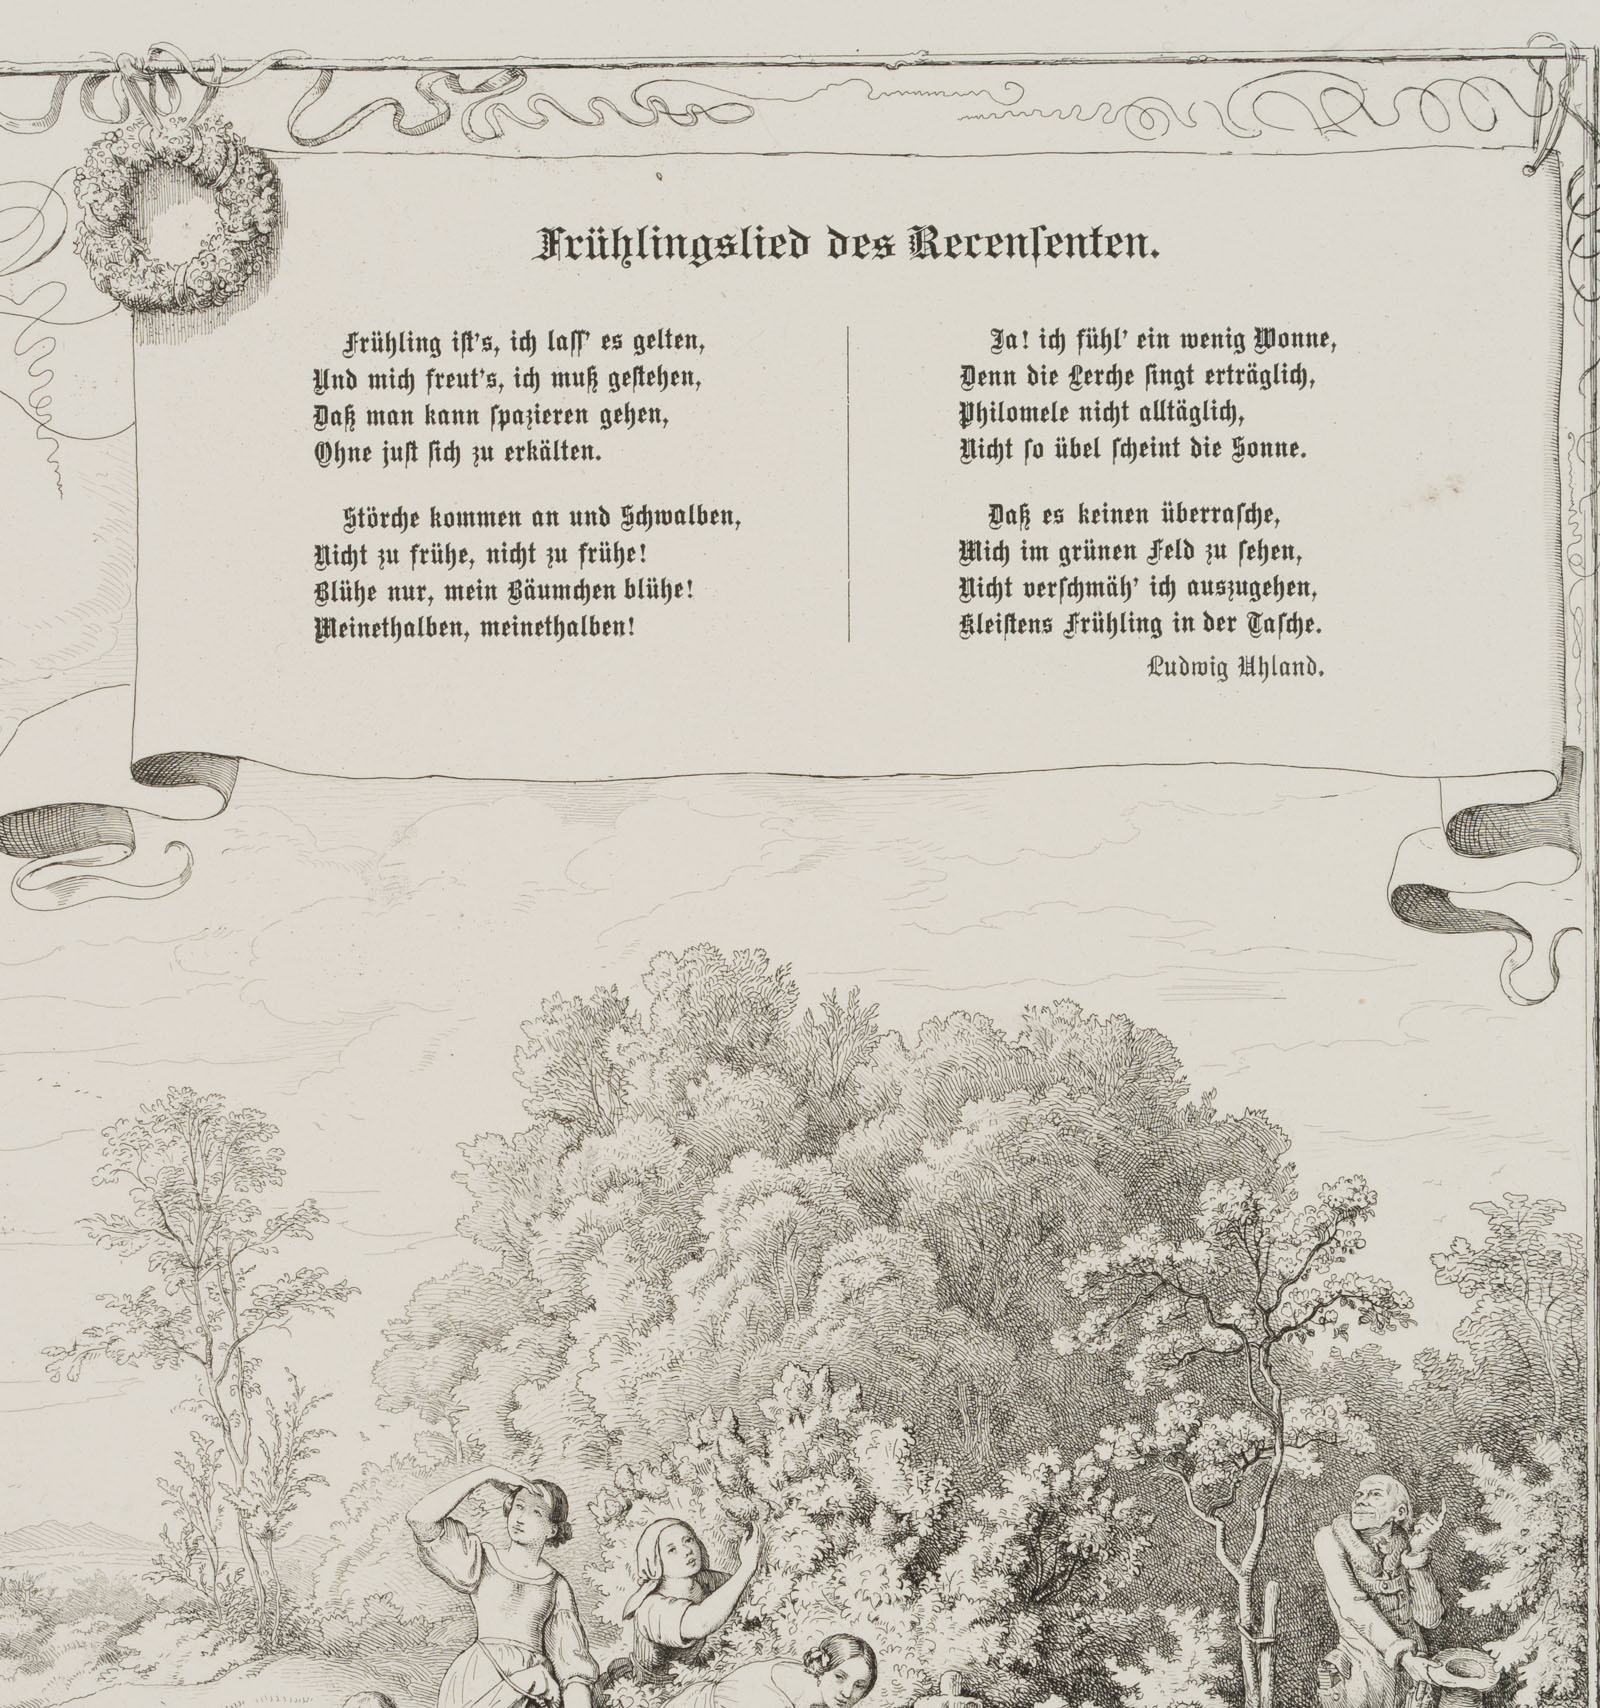 Frühlingslied des Recensenten.
Frühling ist's, ich lass' es gelten,
Und mich freut's, ich muß gestehen,
Daß man kann spazieren gehen,
Ohne just sich zu erkälten.
Störche kommen an und Schwalben,
Nicht zu frühe, nicht zu frühe!
Blühe nur, mein Bäumchen blühe!
Meinethalben, meinethalben!
Ja! ich fühl' ein wenig Wonne,
Denn die Lerche singt erträglich,
Philomele nicht alltäglich,
Nicht so übel scheint die Sonne.
Daß es keinen überrasche,
Mich im grünen Feld zu sehen,
Nicht verschmäh' ich auszugehen,
Kleistens Frühling in der Tasche.
Ludwig Uhland.